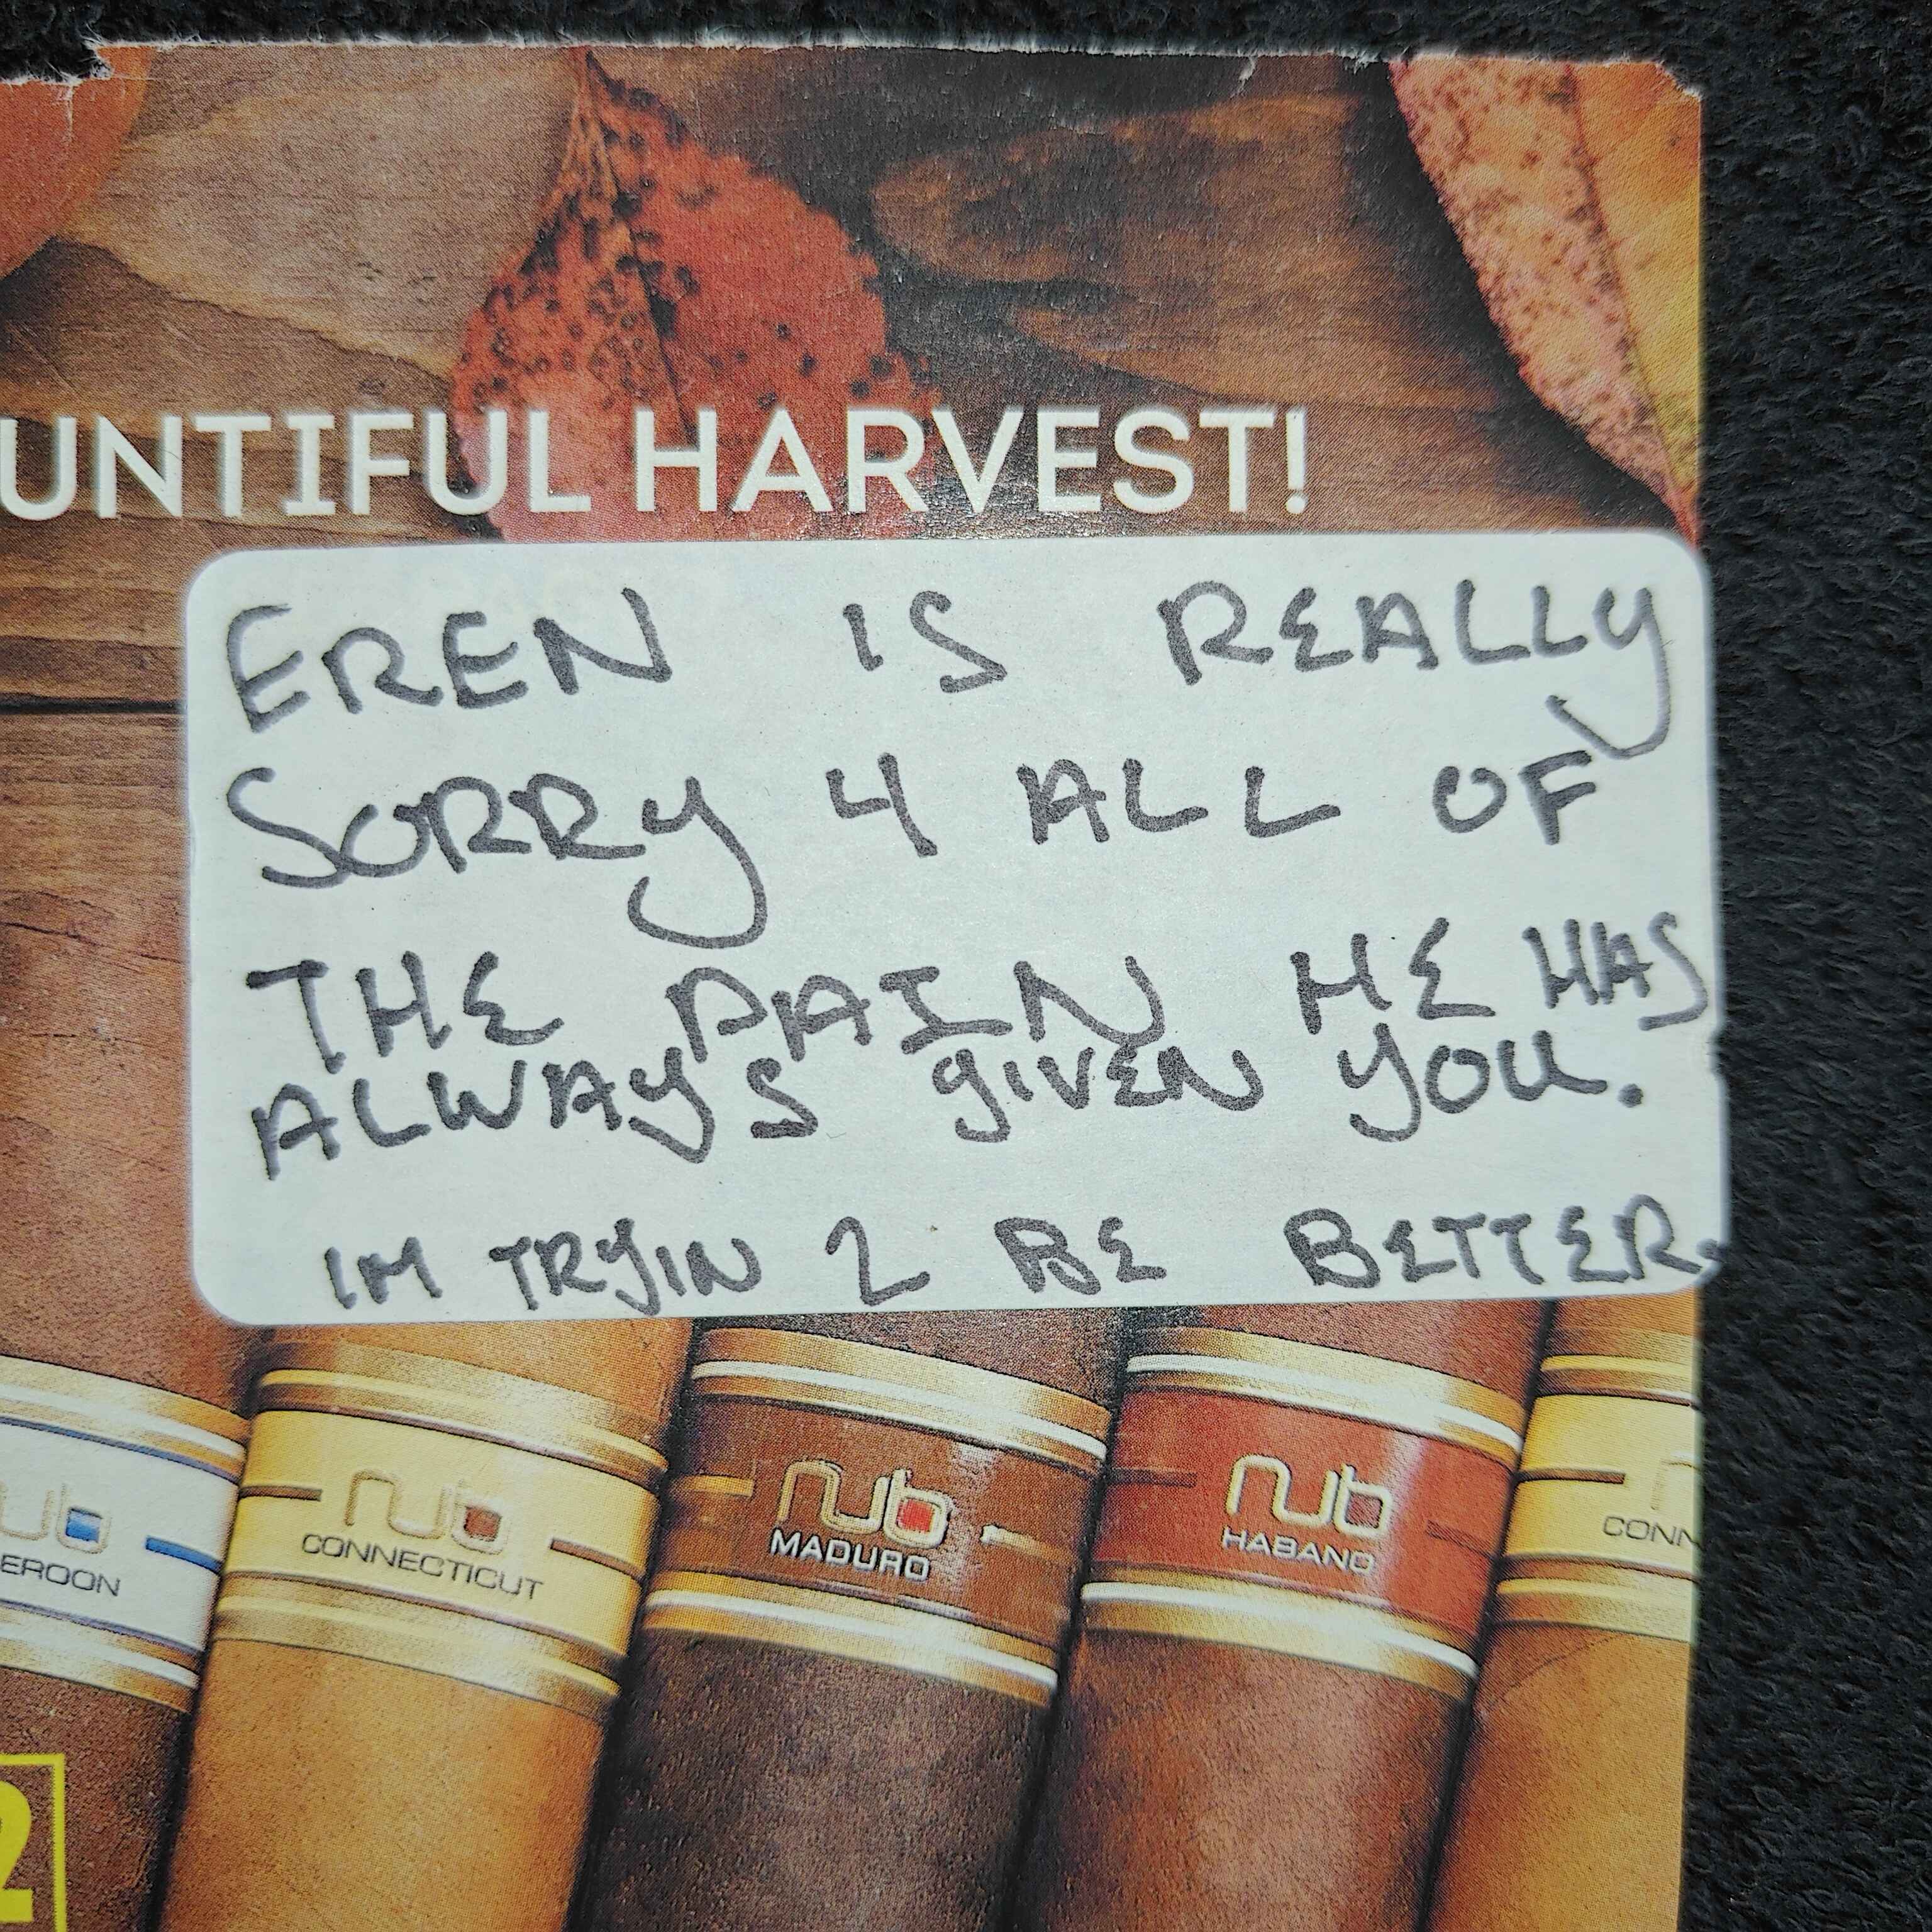 UNTIFUL HARVEST!
EREN IS REALLY
SORRY 4 ALL OF
THE PAIN HE HAS
ALWAYS GIVEN YOU.
IM TRYIN 2 BE BETTER.
nub
EROON
nub
CONNECTICUT
nub
MADURO
nub
HABANO
CONN
2